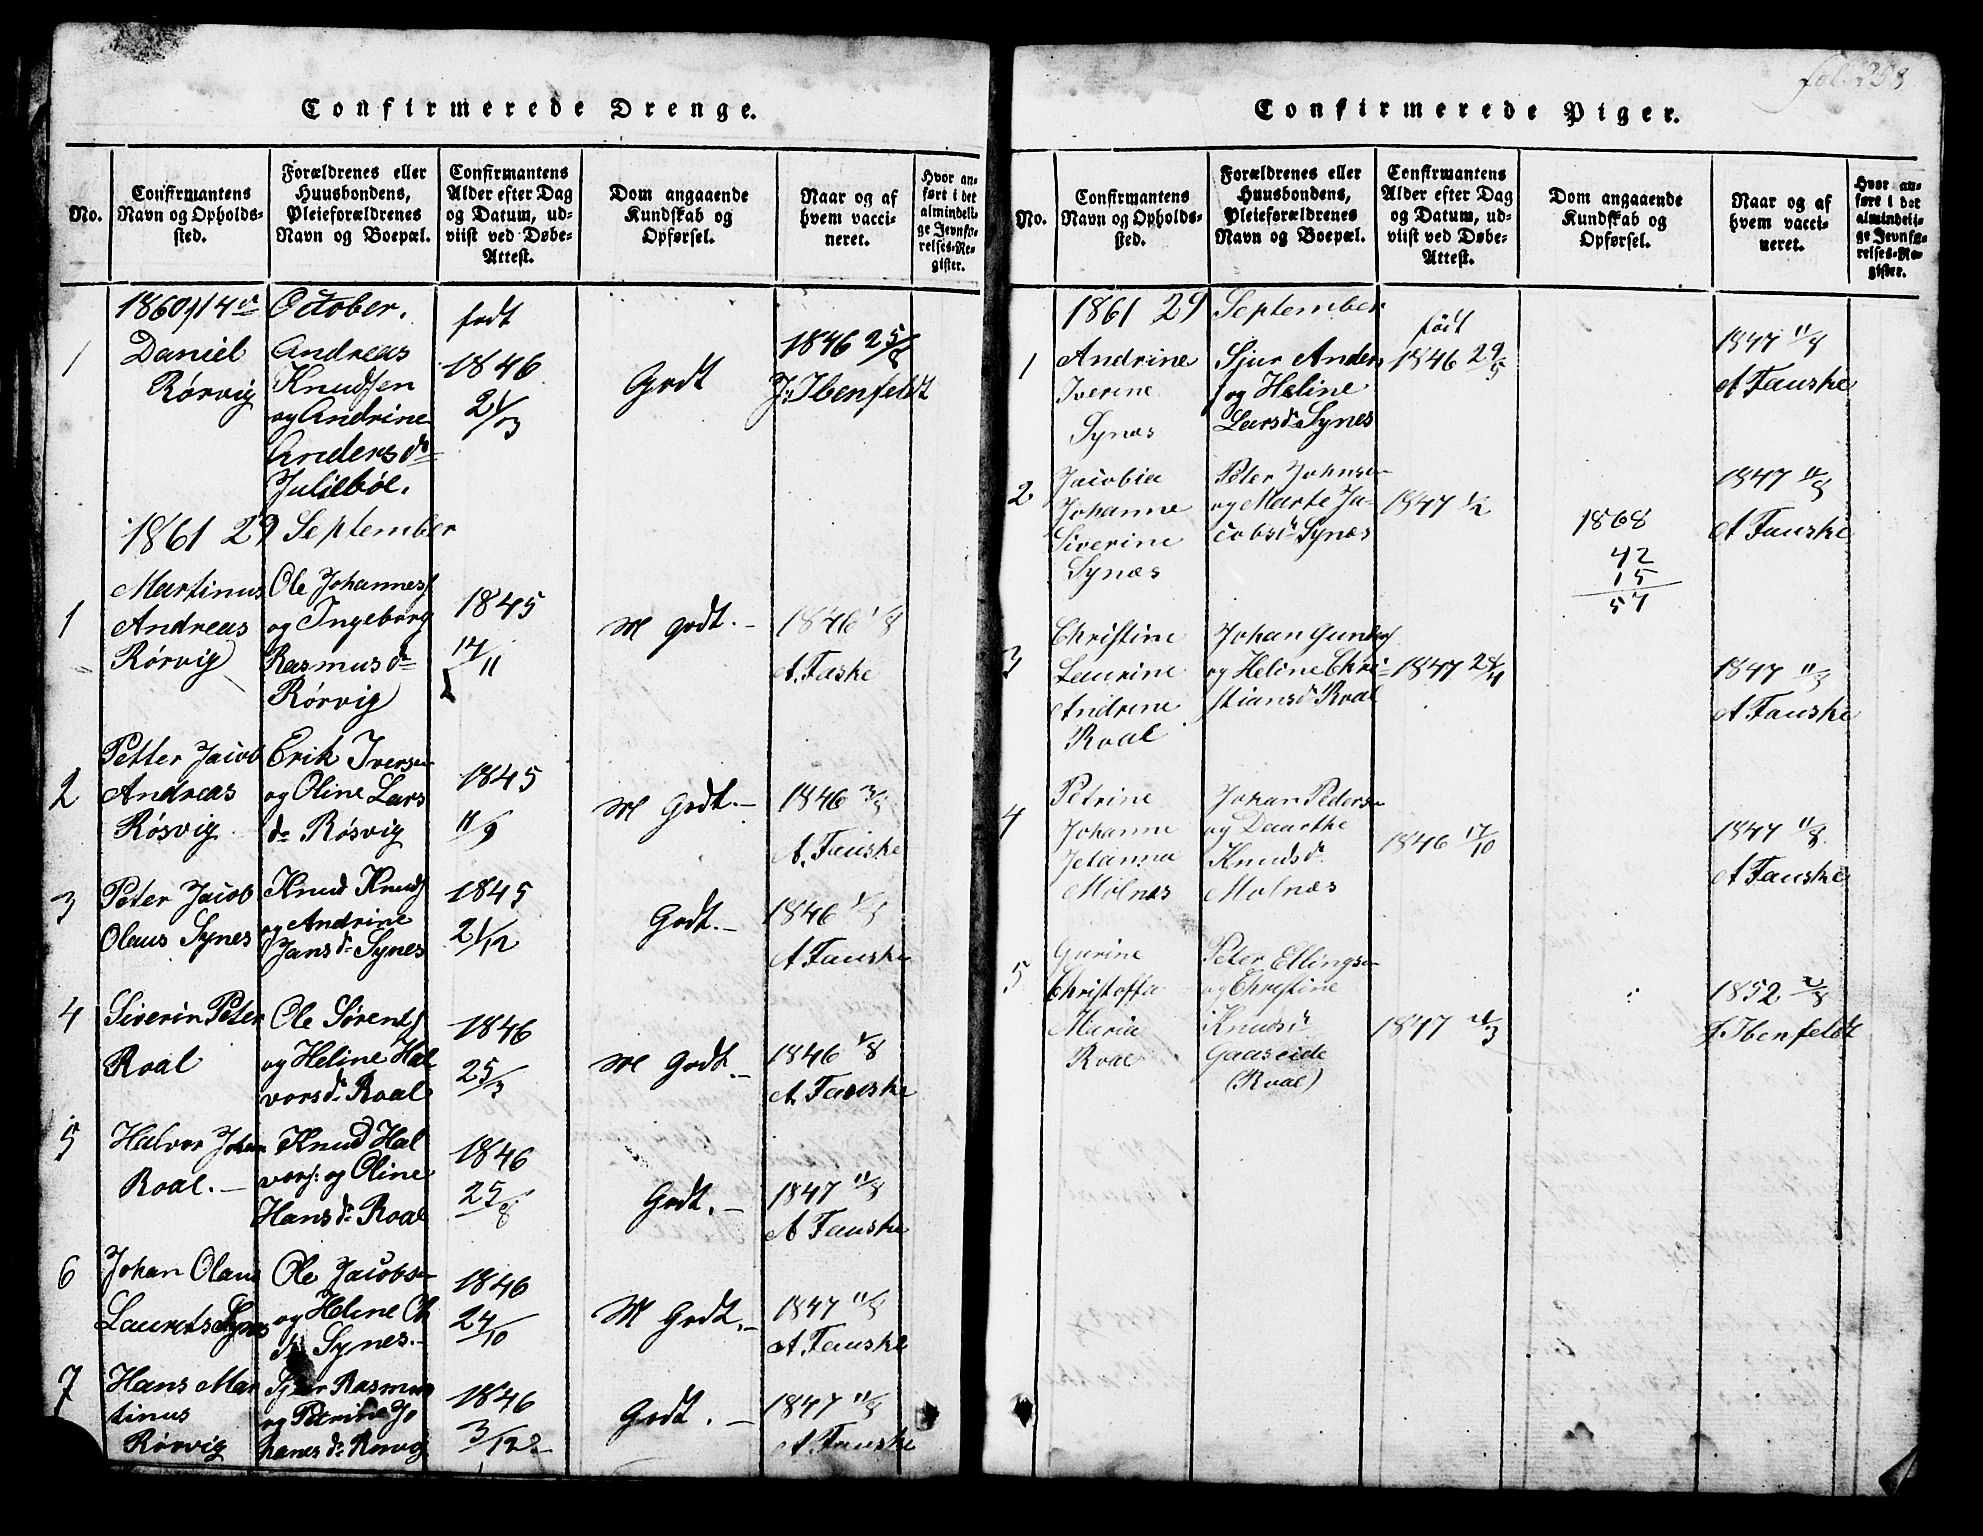 Confirmerede Drenge.
No.
Confirmantens
Navn og Opholds-
sted.
Forældrenes eller
Huusbondens,
Pleieforældrenes
Navn og Boepæl.
Confirmantens
Alder efter Dag
og Datum, ud-
viist ved Døbe-
Attest.
Dom angaaende
Kundskab og
Opførsel.
Naar og af
hvem vacci-
neret.
Hvor an-
ført i det
almindeli-
ge Jevnfø-
relses-Re-
gister.
1860 14de October.
1
Daniel
Rørvig
Andreas
Knudsen
og Andrine
Andersdr
Julsebøe.
født
1846
21/3
Godt
1846 25/8
J. Ibenfeldt
1861 29 September
1
Martinus
Andreas
Rørvig
Ole Johannesf
og Ingeborg
Rasmusdr
Rørvig
1845
14/11
M Godt.
1846 1/8
A. Faske
2
Petter Jacob
Andreas
Røsvig
Erik Iversen
og Oline Lars
dr Røsvig
1845
11/9
M Godt.
1846
A. Fauske
3
Peter Jacob
Olaus Synes
Knud Knuds
og Andrine
Jansdr Synes
1845
21/12
Godt.
1846
A Fauske
4
Siverin Peter
Roal
Ole Sørens
og Heline Hal
vorsdr Roal
1846
25/3
M Godt.
1846 1/8
A. Fauske
5
Halvor Johan
Roal.
Knud Hal
vors: og Oline
Hansdr Roal
1846
25/8
Godt.
1847 11/8
A Fauske
6
Johan Olaus
Laurets Synes
Ole Jacobsen
og Heline Ch
dr Synes.
1846
24/10
M Godt.
1847 11/8
A. Fauske
7
Hans Mar
tinus
Rørvig
Sjur Rasmus
og Petrine Jo
hanesdr Rørvig
1846
3/12
Godt.
1847 11/8
A. Fauske
fol. 258
Confirmerede Piger.
No.
Confirmantens
Navn og Opholds-
sted.
Forældrenes eller
Huusbondens,
Pleieforældrenes
Navn og Boepæl.
Confirmantens
Alder efter Dag
og Datum, ud-
viist ved Døbe-
Attest.
Dom angaaende
Kundskab og
Opførsel.
Naar og af
hvem vacci-
neret.
Hvor an-
ført i det
almindeli-
ge Jevnfø-
relses-Re-
gister.
1861 29 September
1
Andrine
Iverine
Synes
Sjur Anders
og Heline
Larsdr Synes
født
1846 29/5
1847 11/8
A Fauske
2
Jacobia
Johanne
Siverine
Synæs
Peter Johnsen
og Marte Ja-
cobsdr Synæs
1847 1/2
1868
42
15
57
1847 11/8
A Fauske
3
Christine
Laurine
Andrine
Roal
Johan Gunders
og Heline Chri-
stiansdr Roal
1847
1847 11/8
A Fauske
4
Petrine
Johanne
Jetanna
Molnæs
Johan Pedersen
og Daarthe
Knudsdr
Molnæs
1846 17/10
1847 11/8
A Fauske
5
Gurine
Christoffa
Maria
Roal
Peter Ellingsen
og Christine
Knudsdr
Gaaseide
(Roal)
1847
1852
J. Ibenfeldt